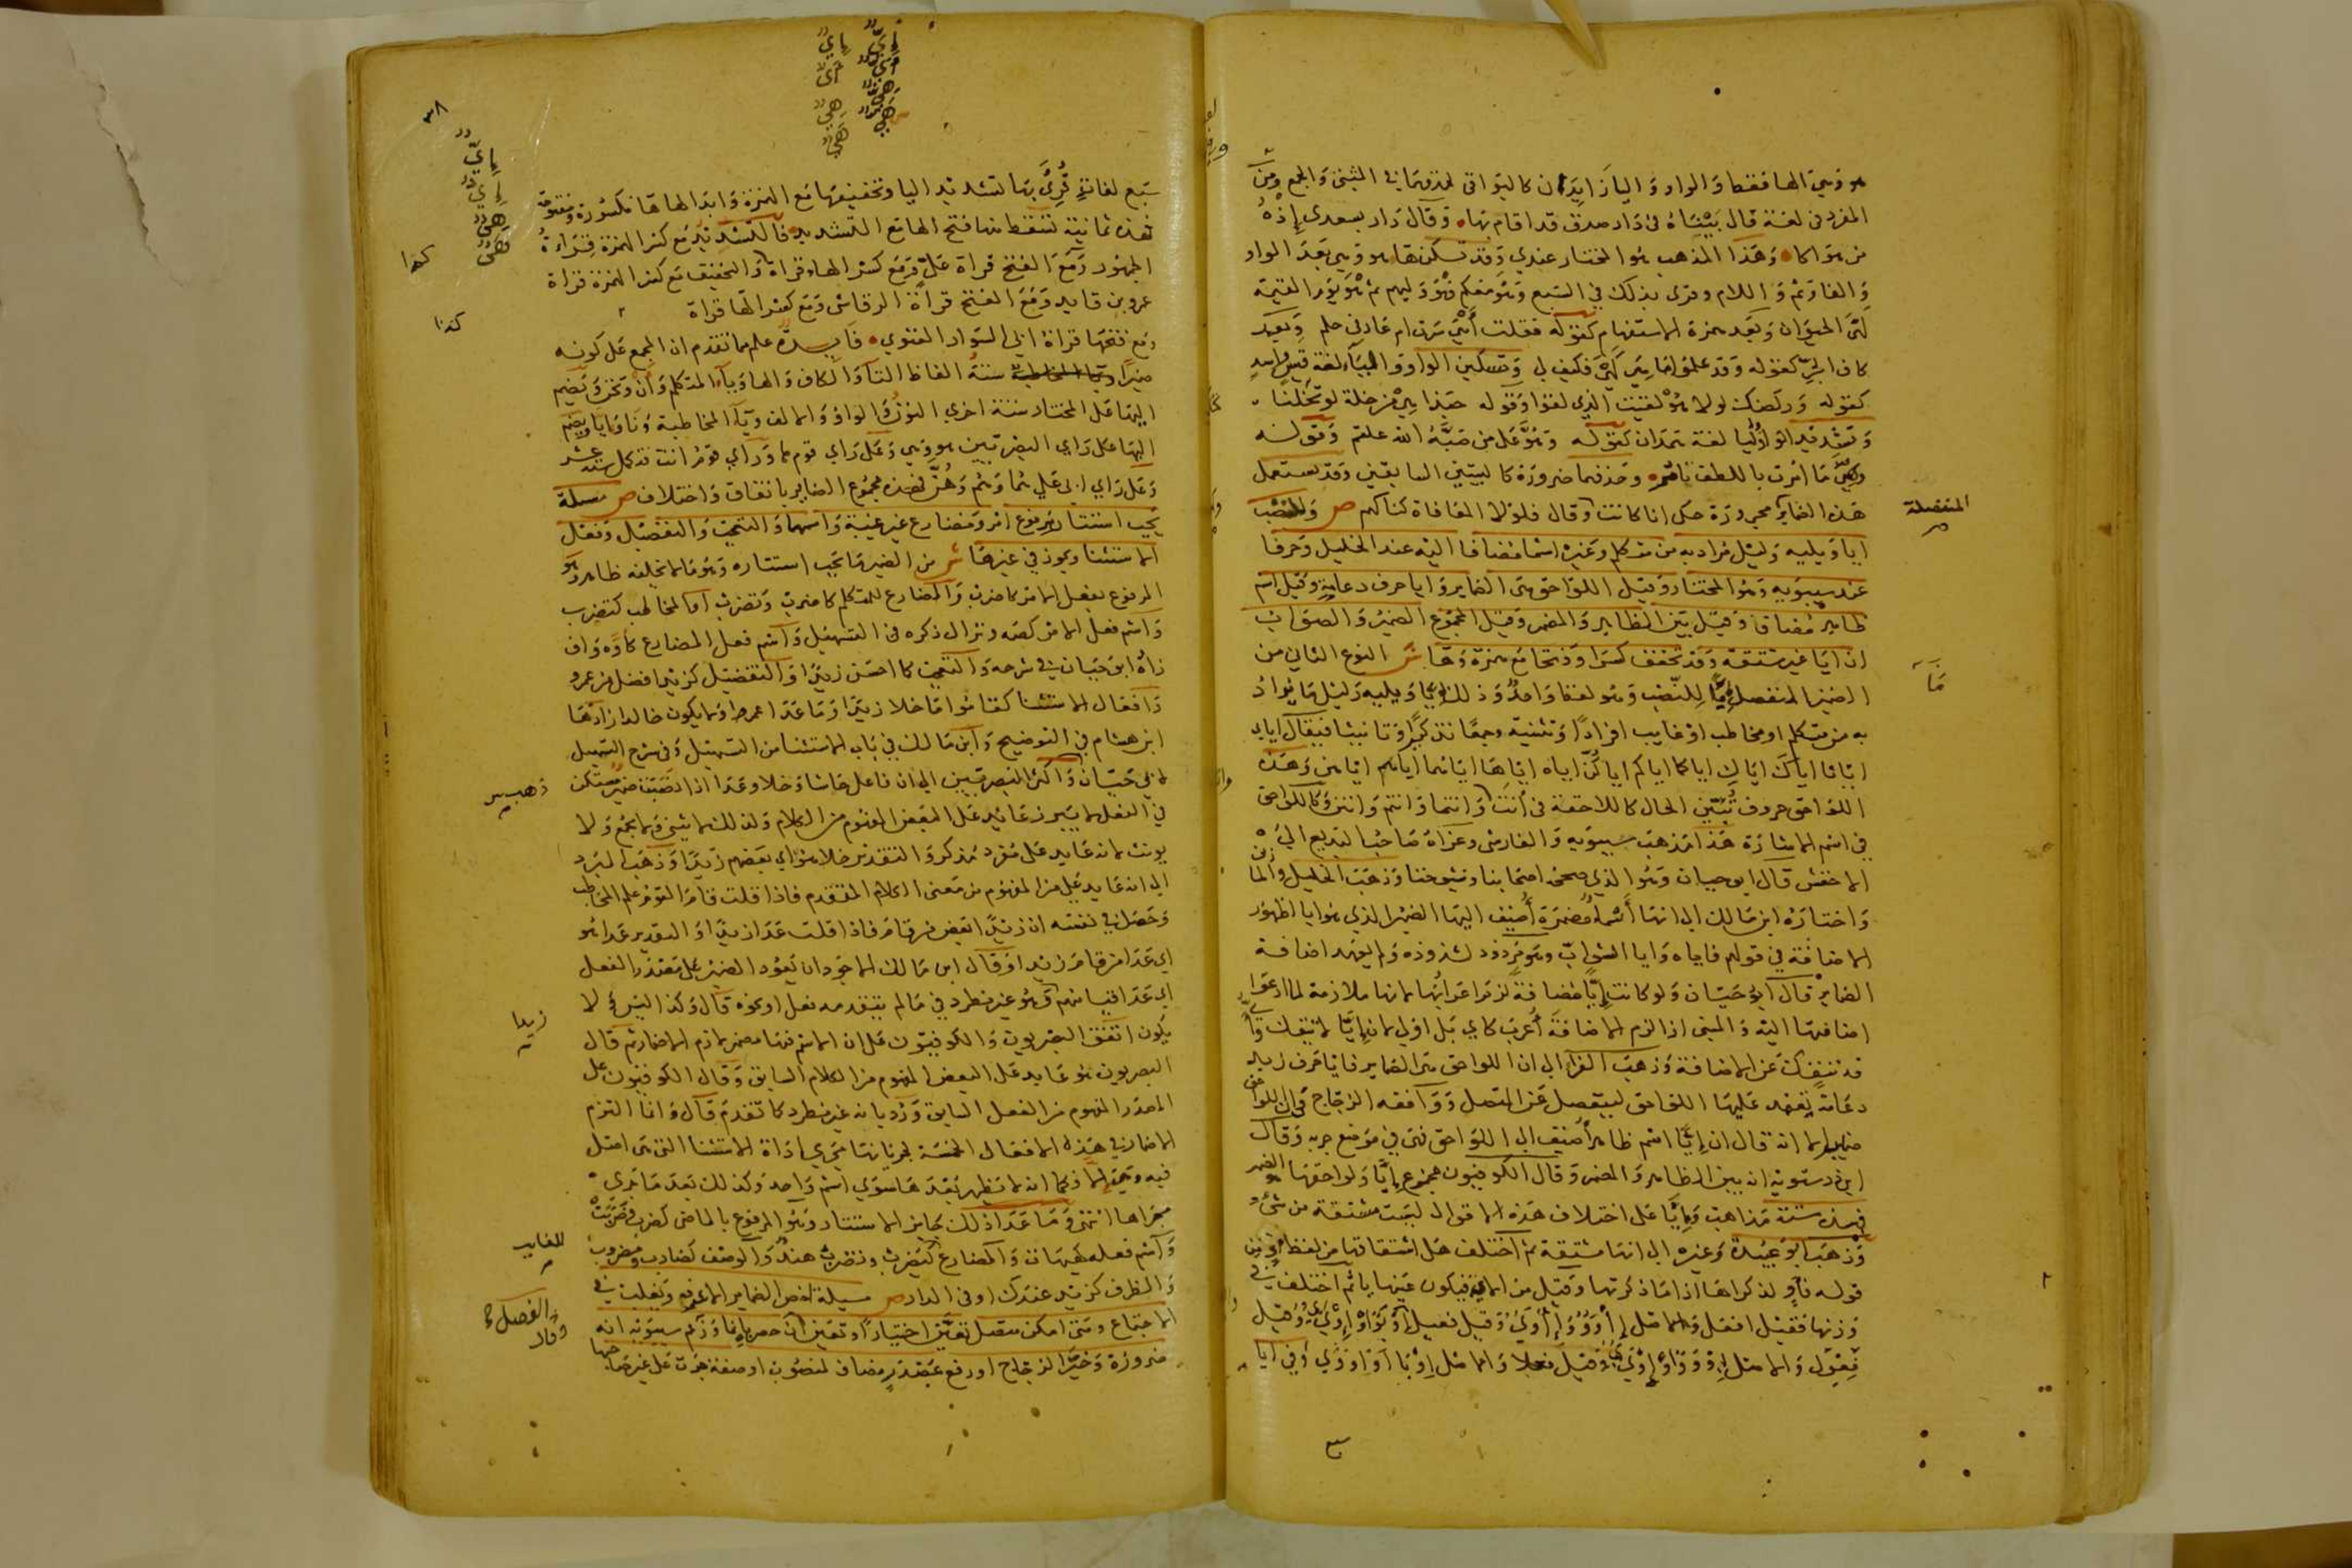 هو وهي الها فقط والواو واليا زايدان كالبواقي لحذفهما في المثنى والجمع ومن
المفرد في لغة قال بيناه في دار صدق قد اقام بها وقال دار لسعدى إذه
من هواكا وهذا المذهب هو المختار عندي وقد تسكن ها هو وهي بعد الواو
والفا وثم واللام وقرى بذلك في السبع وهو معكم فهو وليهم ثم هو يوم القيمة
لهي الحيوان وبعد همزة الاستفهام كقوله فقلت أهي سرت ام عادني حلم وبعد
كاف الجر كقوله وقد علموا ما هن كهي فكيف لي وتسكين الواو واليا لغة قيس واسد
كقوله وركضك لولا هو لقيت الذي لقوا وقوله حبذا هي من خلة لو تخلنا
وتشديد الواو واليا لغة همدان كقوله وهو على من صبه الله علقم وقوله
وهي ما امرت باللطف تاتمر وحذفهما ضرورة كالبيتين السابقين وقد تستعمل
هذه الضماير مجرورة حكى انا كانت وقال فلولا المعافاة كنا كهم ص وللنصب
ايا ويليه دليل مراد به من متكلم وغيره اسما مضافا اليه عند الخليل وحرفا
عند سيبويه وهو المختار وقيل اللواحق هي الضماير وايا حرف دعاية وقيل اسم
ظاهر مضاف وقيل بين الظاهر والمضمر وقيل المجموع الضمير والصواب
ان ايا غير مشتقة وقد تخفف كسرا وفتحا مع همزة وها ش النوع الثاني من
الضمير المنفصل ما للنصب وهو لفظ واحد وذلك إيا ويليه دليل ما يراد
به من متكلم او مخاطب او غايب افرادا وتثنية وجمعا تذكيرا وتانيثا فيقال اياي
ايانا اياك اياك اياكما اياكم اياكن اياه اياها اياهما اياهم اياهن وهذه
اللواحق حروف تبين الحال كاللاحقة في أنت وانتما وانتم وانتن وكاللواحق
في اسم الاشارة هذا مذهب سيبويه والفارسي وعزاه صاحب البديع الى
الاخفش قال ابو حيان وهو الذي صححه اصحابنا وشيوخنا وذهب الخليل والمازني
واختاره ابن مالك الى انها أسماء مضمرة أضيف اليها الضمير الذي هو ايا لظهور
الاضافة في قولهم فاياه وايا الشواب وهو مردود لشذوذه ولم يعهد اضافة
الضماير قال ابو حيان ولو كانت إيا مضافة لزم اعرابها لانها ملازمة لما ادعوا
اضافتها اليه والمبني اذا لزم الاضافة أعرب كاي بل اولى لان إيا لا تنفك واي
قد تنفك عن الاضافة وذهب الفرا الى ان اللواحق هي الضماير فايا حرف زيد
دعامة يعتمد عليها اللواحق لينفصل عن المتصل ووافقه الزجاج في ان اللواحق
ضماير الا انه قال ان إيا اسم ظاهر أضيف الى اللواحق فهي في موضع جر به وقال
ابن درستويه انه بين الظاهر والمضمر وقال الكوفيون مجموع إيا ولواحقها هو الضمير
فهذه ستة مذاهب وإيا على اختلاف هذه الاقوال ليست مشتقة من شيء
وذهب ابو عبيدة وغيره الى انها مشتقة ثم اختلف هل اشتقاقها من لفظ أو من
قوله فأو لذكراها اذا ما ذكرتها وقيل من الاية فيكون عينها يا ثم اختلف في
وزنها فقيل افعل والاصل
المنفصلة
سبع لغات قرئ بها تشديد اليا وتخفيفها مع الهمزة وابدالها ها مكسورة ومفتوحة
فهذه ثمانية يسقط منها فتح الها مع التشديد فالتشديد مع كسر الهمزة قراءة
الجمهور ومع الفتح قراة علي ومع كسر الها قراة والتخفيف مع كسر الهمزة قراة
عمرو بن فايد ومع الفتح قراة الرقاشي ومع كسر الها قراة
ومع فتحها قراة ابي السوار الغنوي فايدة علم مما تقدم ان المجمع على كونه
ضميرا ستة الفاظ التا والكاف والها ويا المتكلم وأنا ونحن ويضم
اليها على المختار ستة اخرى النون والواو والالف ويا المخاطبة ونا وايا ويضم
اليها على راي البصريين هو وهي وعلى راي قوم ما وراي قوم انت فتكمل ستة عشر
وعلى راي ابي علي هما وهم وهن فهذه مجموع الضماير باتفاق واختلاف ص مسلة
يجب استتار مرفوع امر ومضارع غير غيبة واسمهما والتعجب والتفضيل وفعل
الاستثنا ويجوز في غيرها ش من الضمير ما يجب استتاره وهو ما لا يخلفه ظاهر وهو
المرفوع بفعل الامر كاضرب والمضارع للمتكلم كاضرب ونضرب او المخاطب كتضرب
واسم فعل الامر كصه ونزال ذكره في التسهيل واسم فعل المضارع كأوه واف
زاده ابو حيان في شرحه والتعجب كما احسن زيدا والتفضيل كزيد افضل من عمرو
وافعال الاستثنا كقاموا ما خلا زيدا وما عدا عمرا ولا يكون خالدا زادها
ابن هشام في التوضيح وابن مالك في باب الاستثنا من التسهيل وفي شرح التسهيل
لابي حيان واكثر البصريين الى ان فاعل حاشا وخلا وعدا اذا نصبت ضمير مستكن
في الفعل لا يبرز عايد على البعض المفهوم من الكلام ولذلك لا يثنى ولا يجمع ولا
يونث لانه عايد على مفرد مذكر والتقدير خلا هو اي بعضهم زيدا وذهب المبرد
الى انه عايد على من المفهوم من معنى الكلام المتقدم فاذا قلت قام القوم علم المخاطب
وحصل في نفسه ان زيدا بعض من قام فاذا قلت عدا زيدا والتقدير عدا هو
اي عدا من قام زيدا وقال ابن مالك الاجود ان يعود الضمير على مصدر الفعل
اي عدا قيامهم وهو غير مطرد في ما لم يتقدمه فعل او نحوه قال وكذا ليس ولا
يكون اتفق البصريون والكوفيون على ان الاسم فيهما مضمر لازم الاضمار ثم قال
البصريون هو عايد على البعض المفهوم من الكلام السابق وقال الكوفيون على
المصدر المفهوم من الفعل السابق ورد بانه غير مطرد كما تقدم قال وانما التزم
الاضمار في هذه الافعال الخمسة لجريانها مجرى اداة الاستثنا التي هي اصل
فيه وهي إلا فكما انه لا يظهر بعدها سوى اسم واحد وكذلك بعد ما جرى
مجراها انتهى وما عدا ذلك جايز الاستتار وهو المرفوع بالماضي كضرب وضربت
واسم فعله كهيهات والمضارع كيضرب وتضرب هند والوصف كضارب ومضروب
والظرف كزيد عندك او في الدار ص مسيلة اخص الضماير الاعرف ويغلب في
الاجتماع ومتى امكن متصل تعين اختيارا وتعين ان حصر بانما وزعم سيبويه انه
ضرورة وخير الزجاج او رفع بمصدر مضاف لمنصوب او صفة جرت على غير صاحبها
٣٨
كذا
كذا
ذهب
زيدا
للغايب